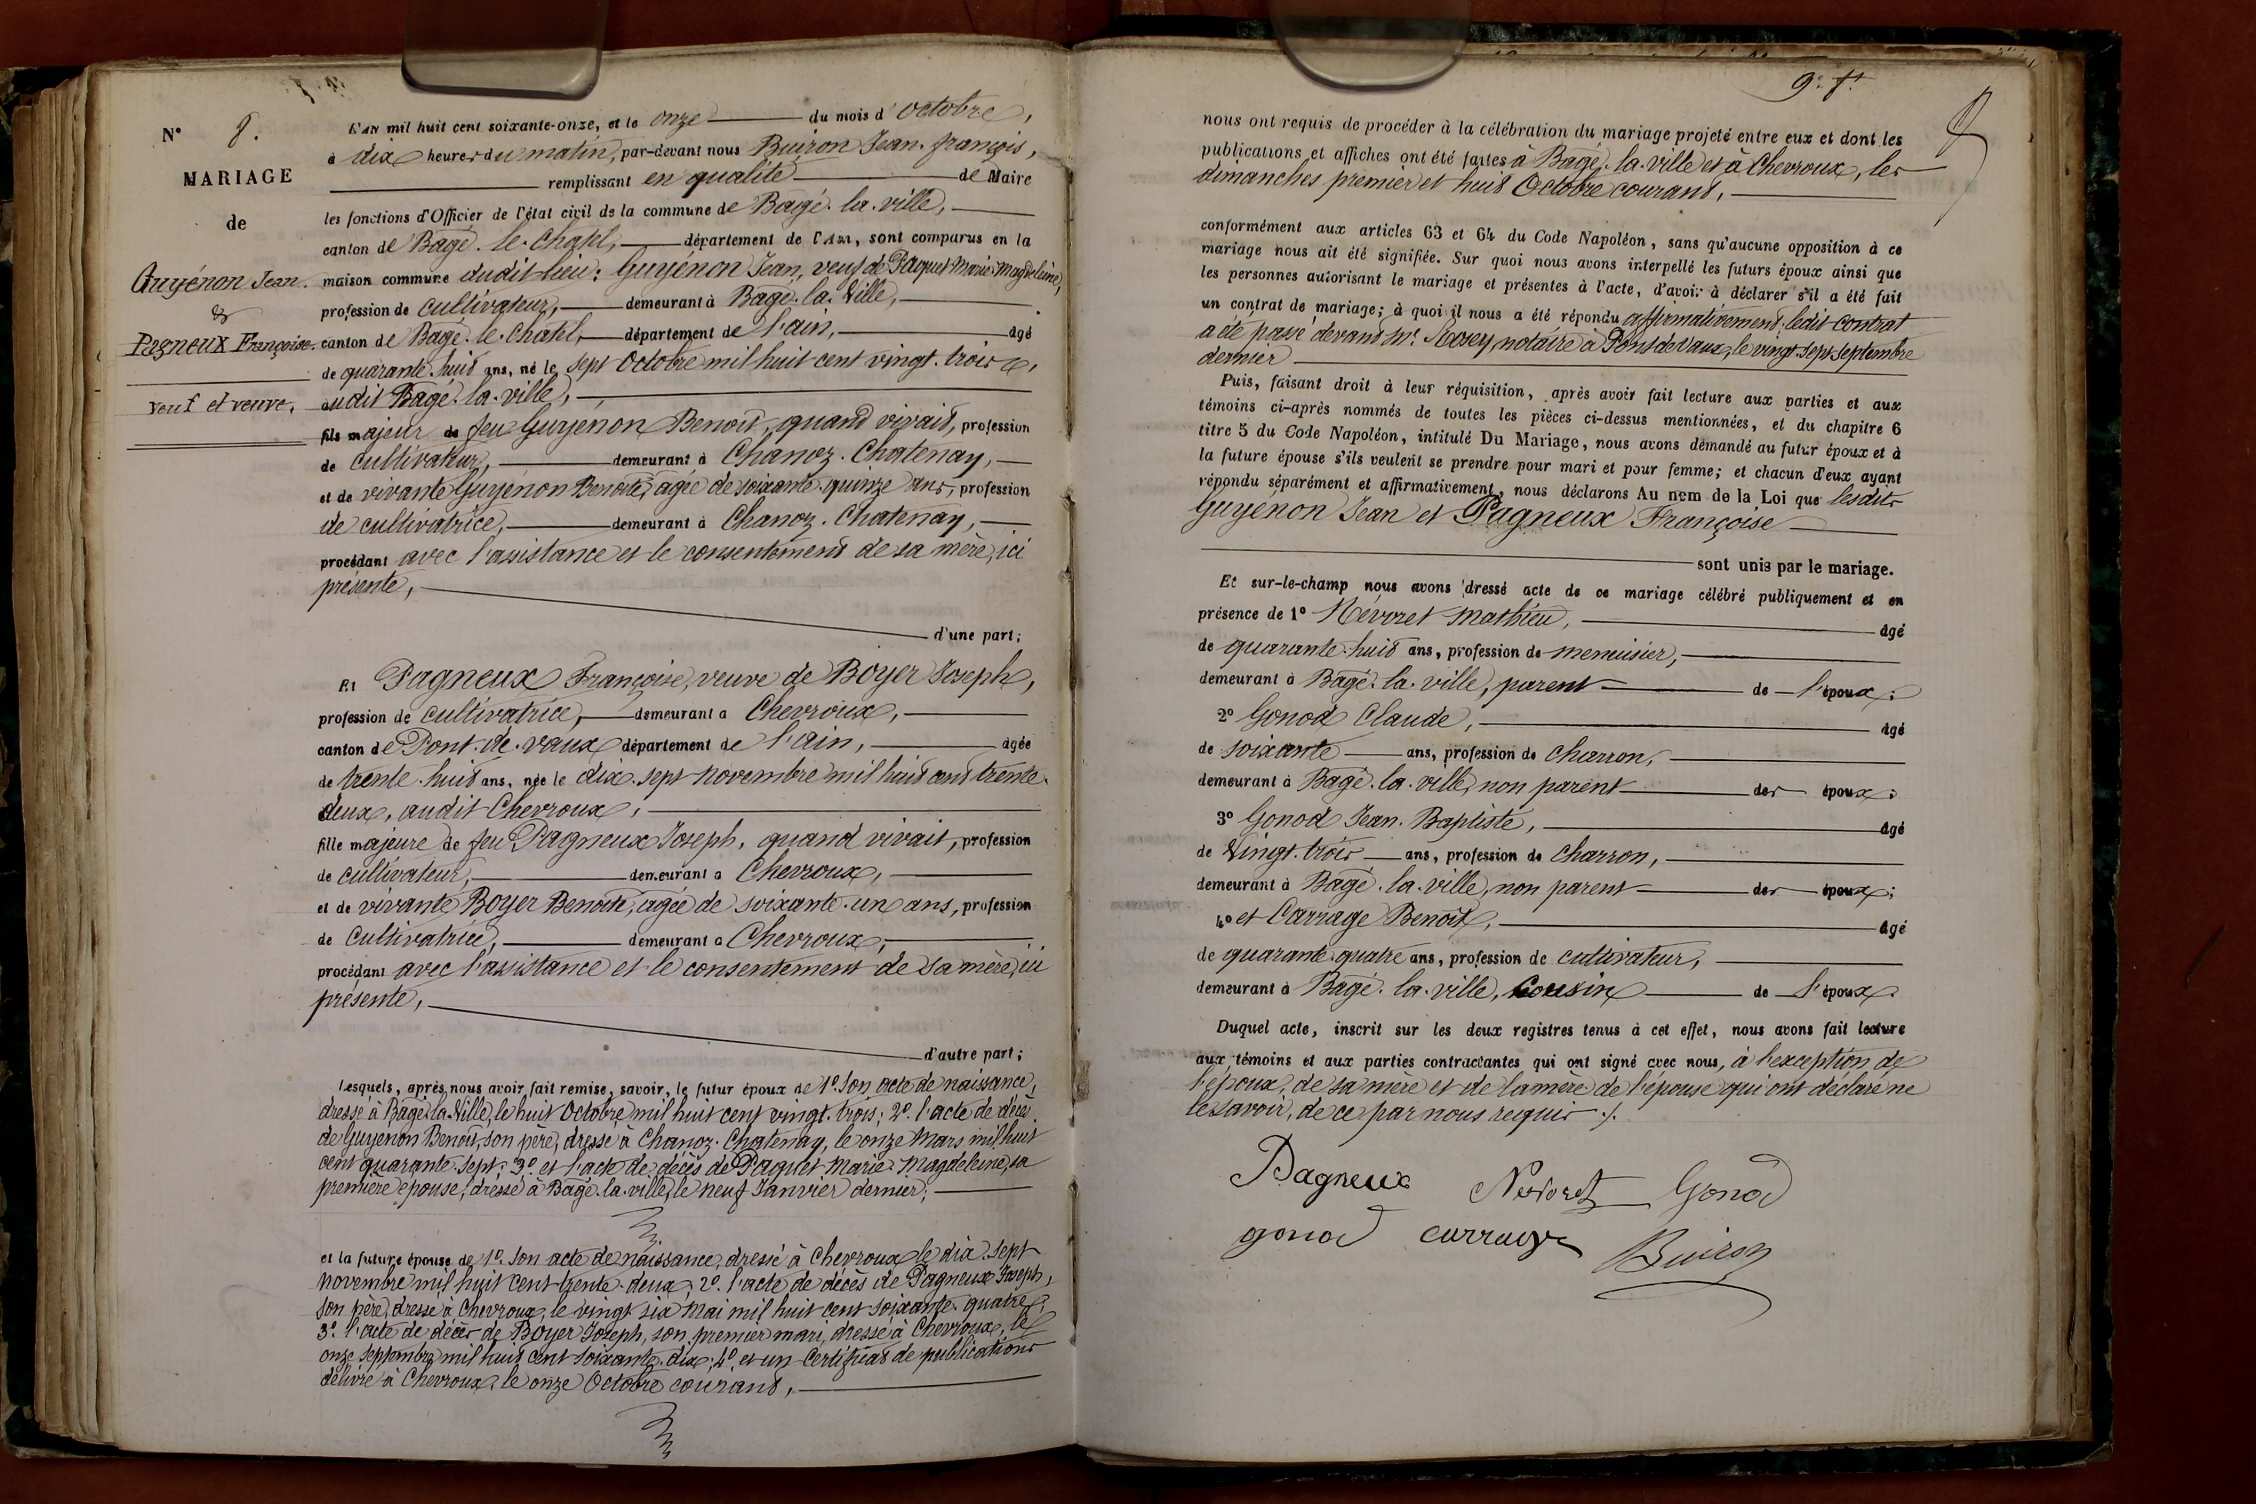 N° 8.
MARIAGE
de
Guyénon Jean.
&
Pagneux Françoise.
veuf et veuve.
L'AN mil huit cent soixante-onze, et le onze du mois d'Octobre,
à dix heures du matin, par-devant nous Buiron Jean-françois,
remplissant en qualité de Maire
les fonctions d'Officier de l'état civil de la commune de Bagé-la-ville,
canton de Bagé-le-Chatel, département de l'AIN, sont comparus en la
maison commune dudit lieu: Guyénon Jean, veuf de Paquet Marie-Magdeleine,
profession de cultivateur, demeurant à Bagé-la-Ville,
canton de Bagé-le-Chatel, département de l'ain, âgé
de quarante-huit ans, né le sept Octobre mil huit cent vingt-trois,
audit Bagé-la-ville,
fils majeur de feu Guyénon Benoit, quand vivait, profession
de cultivateur, demeurant à Chanoz-Chatenay,
et de vivante Guyénon Benoite, agée de soixante-quinze ans, profession
de cultivatrice, demeurant à Chanoz-Chatenay,
procédant avec l'assistance et le consentement de sa mère, ici
présente,
d'une part;
Et Pagneux Françoise, veuve de Boyer Joseph,
profession de cultivatrice, demeurant à Chevroux,
canton de Pont-de-vaux département de l'Ain, âgée
de trente-huit ans, née le dix-sept novembre mil huit cent trente-
deux, audit Chevroux,
fille majeure de feu Pagneux Joseph, quand vivait, profession
de cultivateur, demeurant à Chevroux,
et de vivante Boyer Benoite, agée de soixante-un ans, profession
de Cultivatrice, demeurant à Chevroux,
procédant avec l'assistance et le consentement de sa mère, ici
présente,
d'autre part;
Lesquels, après nous avoir fait remise, savoir, le futur époux de 1° Son acte de naissance,
dressé à Bagé-la-Ville, le huit Octobre mil huit cent vingt-trois; 2° l'acte de décès
de Guyénon Benoit, son père, dressé à Chanoz-Chatenay, le onze Mars mil huit
cent quarante-sept; 3° et l'acte de décès de Paquet Marie-Magdeleine, sa
première épouse, dressé à Bagé-la-ville, le neuf Janvier dernier;
et la future épouse de 1° Son acte de naissance, dressé à Chevroux le dix-sept
novembre mil huit cent trente-deux; 2° l'acte de décès de Pagneux Joseph,
son père, dressé à Chevroux, le vingt six Mai mil huit cent soixante-quatre;
3° l'acte de décès de Boyer Joseph, son premier mari, dressé à Chevroux, le
onze Septembre mil huit cent soixante-dix; 4° et un Certificat de publications
délivré à Chevroux, le onze Octobre courant,
9e ft
nous ont requis de procéder à la célébration du mariage projeté entre eux et dont les
publications et affiches ont été faites à Bagé-la-ville et à Chevroux, les
dimanches premier et huit Octobre courant,
conformément aux articles 63 et 64 du Code Napoléon, sans qu'aucune opposition à ce
mariage nous ait été signifiée. Sur quoi nous avons interpellé les futurs époux ainsi que
les personnes autorisant le mariage et présentes à l'acte, d'avoir à déclarer s'il a été fait
un contrat de mariage; à quoi il nous a été répondu affirmativement, ledit contrat
a été passé devant Me notaire à Pont de Vaux, le vingt-sept septembre
dernier
Puis, faisant droit à leur réquisition, après avoir fait lecture aux parties et aux
témoins ci-après nommés de toutes les pièces ci-dessus mentionnées, et du chapitre 6
titre 5 du Code Napoléon, intitulé Du Mariage, nous avons demandé au futur époux et à
la future épouse s'ils veulent se prendre pour mari et pour femme; et chacun d'eux ayant
répondu séparément et affirmativement, nous déclarons Au nom de la Loi que lesdits
Guyénon Jean et Pagneux Françoise
sont unis par le mariage.
Et sur-le-champ nous avons dressé acte de ce mariage célébré publiquement et en
présence de 1° Névoret Mathieu, âgé
de quarante-huit ans, profession de menuisier,
demeurant à Bagé-la-ville, parent de l'époux;
2° Gonod Claude, âgé
de soixante ans, profession de charron,
demeurant à Bagé-la-ville, non parent des époux;
3° Gonod Jean-Baptiste, âgé
de Vingt-trois ans, profession de Charron,
demeurant à Bagé-la-ville, non parent des époux;
4° et Carrage Benoit, âgé
de quarante-quatre ans, profession de cultivateur,
demeurant à Bagé-la-ville, Cousin de l'époux.
Duquel acte, inscrit sur les deux registres tenus à cet effet, nous avons fait lecture
aux témoins et aux parties contractantes qui ont signé avec nous, à l'exception de
l'époux, de sa mère et de la mère de l'épouse qui ont déclaré ne
le savoir, de ce par nous requis ./.
Pagneux Nevoret Gonod
gonod carrage Buiron